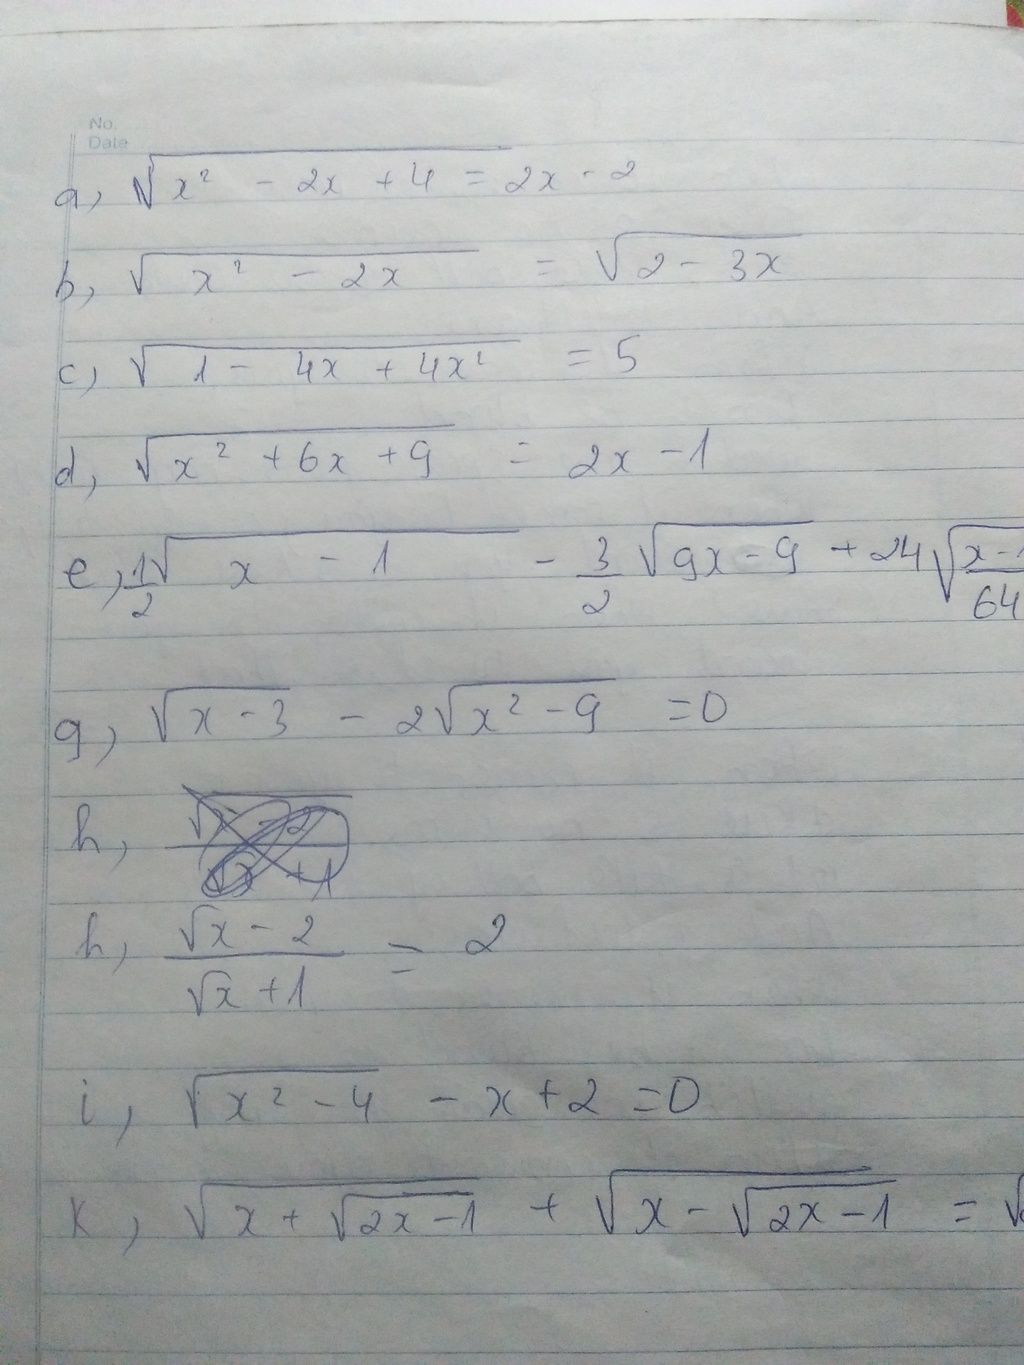 No.
Date
a, √(x² - 2x + 4) = 2x - 2
b, √(x² - 2x) = √(2 - 3x)
c, √(1 - 4x + 4x²) = 5
d, √(x² + 6x + 9) = 2x - 1
e, 1/2 √(x - 1) - 3/2 √(9x - 9) + 24 √((x - 1)/64)
g, √(x - 3) - 2√(x² - 9) = 0
h,
h, (√x - 2)/(√x + 1) = 2
i, √(x² - 4) - x + 2 = 0
k, √(x + √(2x - 1)) + √(x - √(2x - 1)) = √